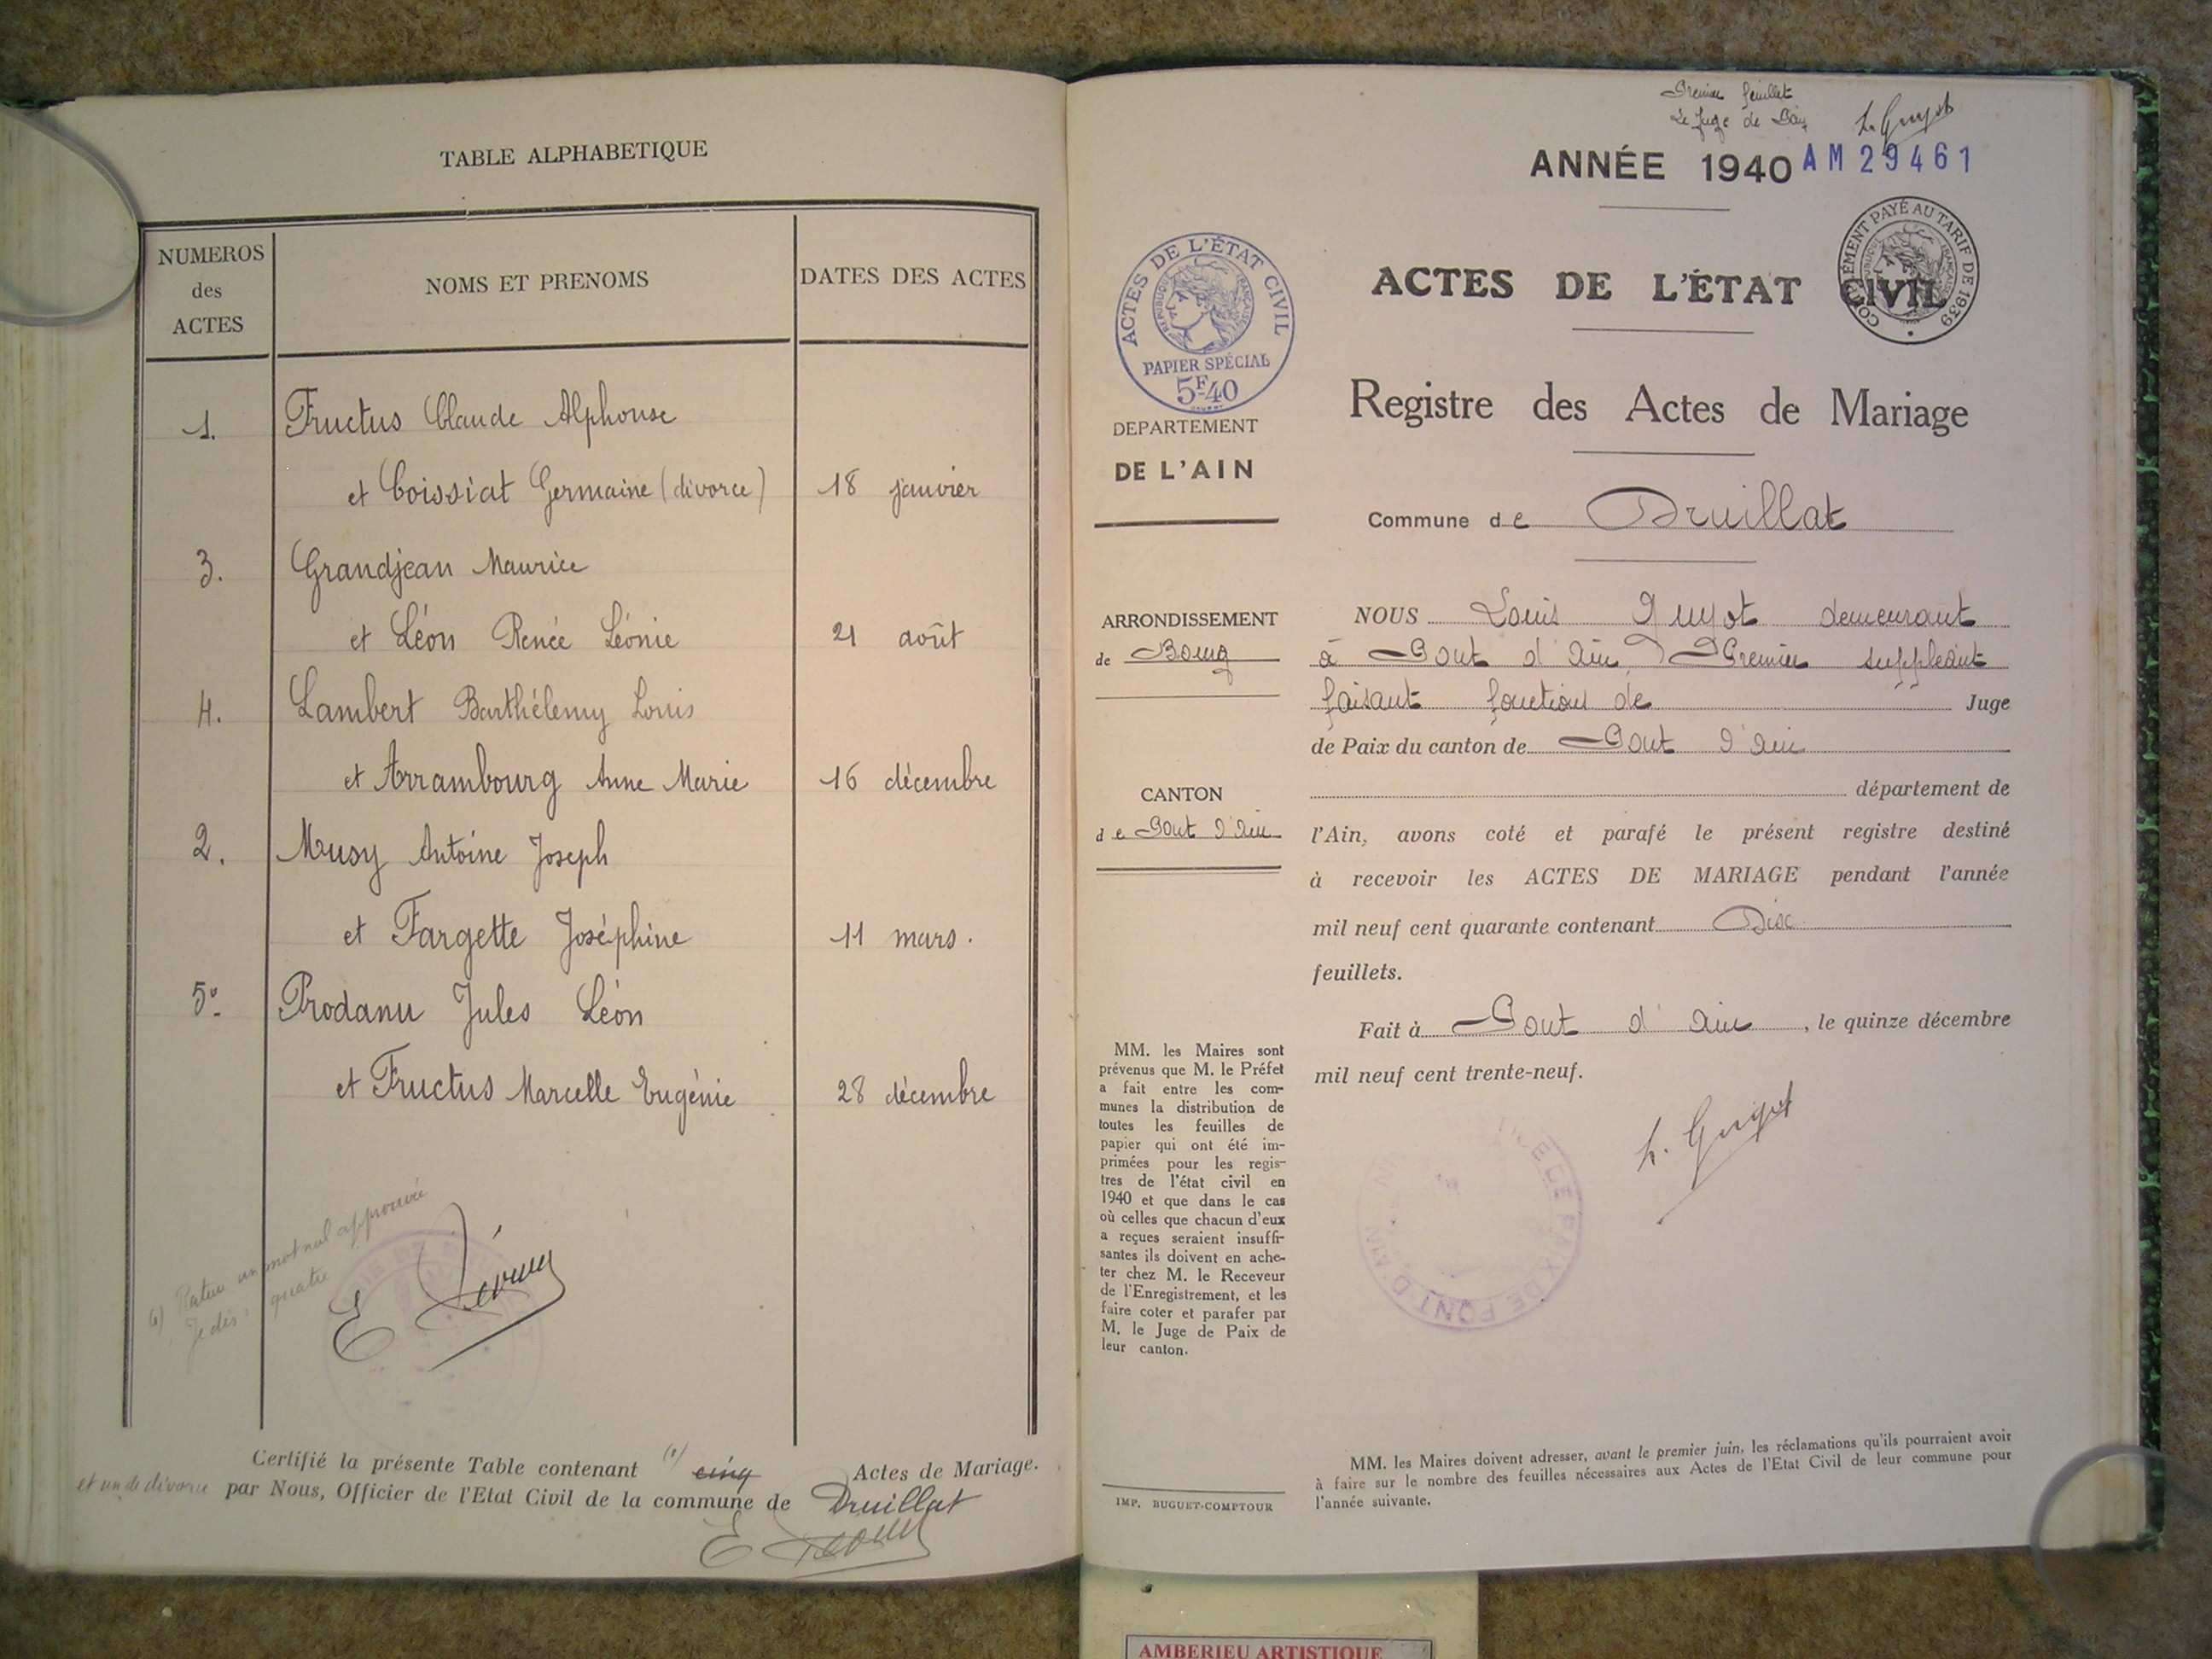 TABLE ALPHABETIQUE
NUMEROS
des
ACTES
NOMS ET PRENOMS
DATES DES ACTES
1. Fructus Claude Alphonse
et Coissiat Germaine (divorce) 18 janvier
3. Grandjean Maurice
et Léon Renée Léonie 21 août
4. Lambert Barthélemy Louis
et Arrambourg Anne Marie 16 décembre
2. Musy Antoine Joseph
et Fargette Joséphine 11 mars.
5. Prodanu Jules Léon
et Fructus Marcelle Eugénie 28 décembre
(1) un mot nul approuvé
Je dis : quatre
Certifié la présente Table contenant (1) cinq Actes de Mariage.
et un de divorce par Nous, Officier de l'Etat Civil de la commune de Druillat
Premier feuillet
Le Juge de Paix L. Guyot
ANNÉE 1940 AM 29461
ACTES DE L'ÉTAT CIVIL
COMPLÉMENT PAYÉ AU TARIF DE 1939
RÉPUBLIQUE FRANÇAISE
ACTES DE L'ÉTAT CIVIL
RÉPUBLIQUE FRANÇAISE
PAPIER SPÉCIAL
5F40
Registre des Actes de Mariage
DEPARTEMENT
DE L'AIN
Commune de Druillat
ARRONDISSEMENT
de Bourg
CANTON
de Pont d'Ain
NOUS Louis Guyot demeurant
à Pont d'Ain, Premier suppléant
faisant fonctions de Juge
de Paix du canton de Pont d'Ain
département de
l'Ain, avons coté et parafé le présent registre destiné
à recevoir les ACTES DE MARIAGE pendant l'année
mil neuf cent quarante contenant Dix
feuillets.
Fait à Pont d'Ain, le quinze décembre
mil neuf cent trente-neuf.
L. Guyot
MM. les Maires sont
prévenus que M. le Préfet
a fait entre les com-
munes la distribution de
toutes les feuilles de
papier qui ont été im-
primées pour les regis-
tres de l'état civil en
1940 et que dans le cas
où celles que chacun d'eux
a reçues seraient insuffi-
santes ils doivent en ache-
ter chez M. le Receveur
de l'Enregistrement, et les
faire coter et parafer par
M. le Juge de Paix de
leur canton.
IMP. BUGUET-COMPTOUR
MM. les Maires doivent adresser, avant le premier juin, les réclamations qu'ils pourraient avoir
à faire sur le nombre des feuilles nécessaires aux Actes de l'Etat Civil de leur commune pour
l'année suivante.
AMBERIEU ARTISTIQUE